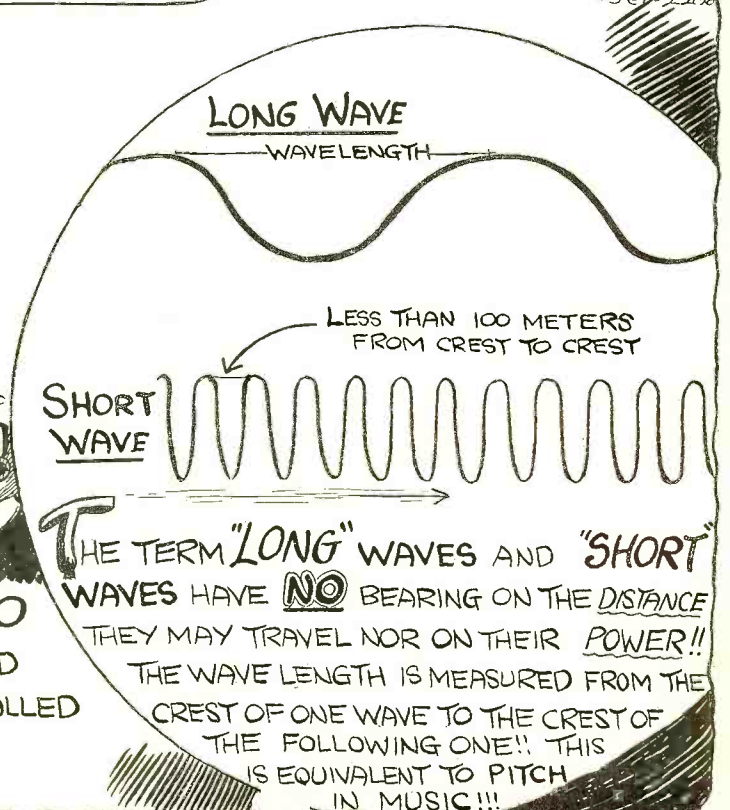 LONG WAVE
WAVELENGTH
LESS THAN 100 METERS
FROM CREST TO CREST
SHORT
WAVE
THE TERM "LONG" WAVES AND "SHORT"
WAVES HAVE NO BEARING ON THE DISTANCE
THEY MAY TRAVEL NOR ON THEIR POWER!!
THE WAVE LENGTH IS MEASURED FROM THE
CREST OF ONE WAVE TO THE CREST OF
THE FOLLOWING ONE!! THIS
IS EQUIVALENT TO PITCH
IN MUSIC!!!